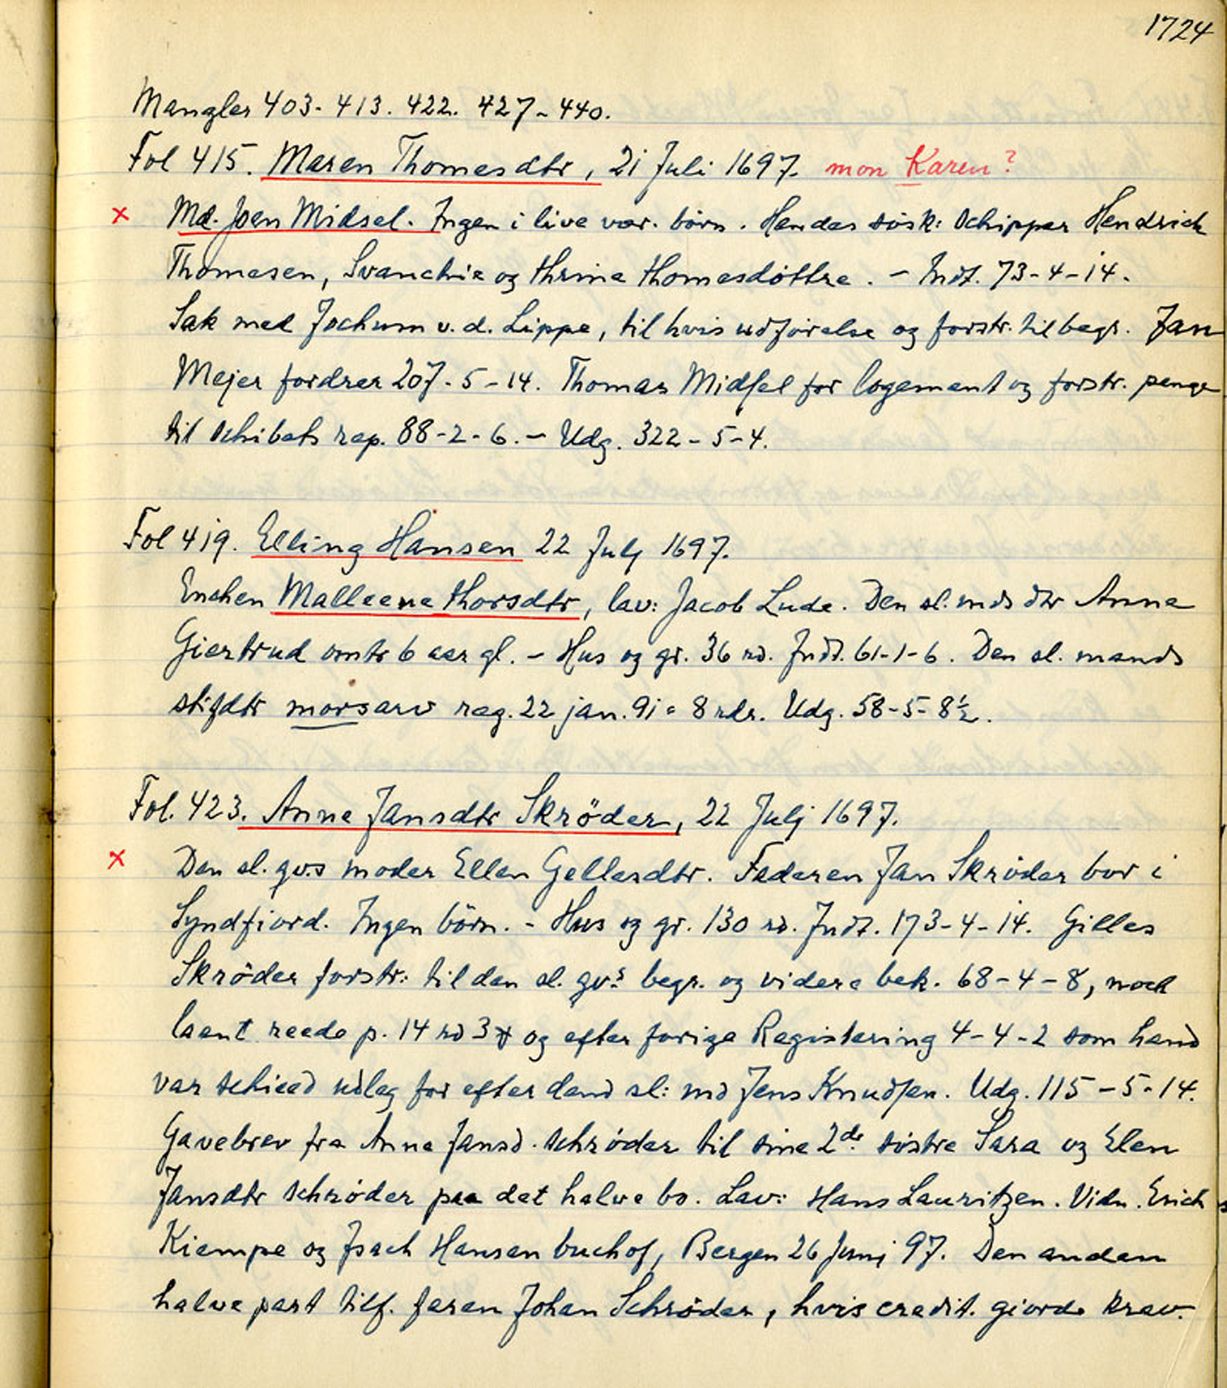 1724
Mangler 403 - 413. 422. 427 - 440.
Fol 415. Maren Thomesdtr, 21 Juli 1697. mon Karen?
x Md. Joen Midsel. Ingen i live vær. börn. Hendes søsk: schipper Hendrich
Thomesen, Svanchie og thrine thomesdøttre. - Indt. 73-4-14.
Sak med Jochum v. d. Lippe, til hvis udførelse og forstr. til begr. Jan
Mejer fordrer 207-5-14. Thomas Midsel for logement og forstr. penge
til schibets rep. 88-2-6. - Udg. 322-5-4.
Fol 419. Elling Hansen 22 July 1697.
Enchen Malleene thorsdtr, lav: Jacob Lude. Den sl. mds dtr Anne
Giertrud omtr 6 aar gl. - Hus og gr. 36 rd. Indt. 61-1-6. Den sl. mands
stifdtr morsarv reg. 22 jan. 91 = 8 rdr. Udg. 58-5-8½.
Fol. 423. Anne Jansdtr Skröder, 22 Julj 1697.
x Den sl. qv.s moder Ellen Gellerdtr. Faderen Jan Skrøder bor i
Syndfiord. Ingen börn. - Hus og gr. 130 rd. Indt. 173-4-14. Gilles
Skrøder forstr: til den sl. qvs begr. og videre bek. 68-4-8, noch
laent reede p. 14 rd 3 og efter forige Registering 4-4-2 som hand
var schieed udlag for efter dend sl: md Jens Knudsen. Udg. 115-5-14.
Gavebrev fra Anne Jansd. schrøder til sine 2de søstre Sara og Elen
Jansdtr schrøder paa det halve bo. Lav: Hans Lauritzen. Vidn. Erich
Kiempe og Isach Hansen buchof, Bergen 26 Junj 97. Den anden
halve part tilf. faren Johan Schrøder, hvis credit. giorde krav.